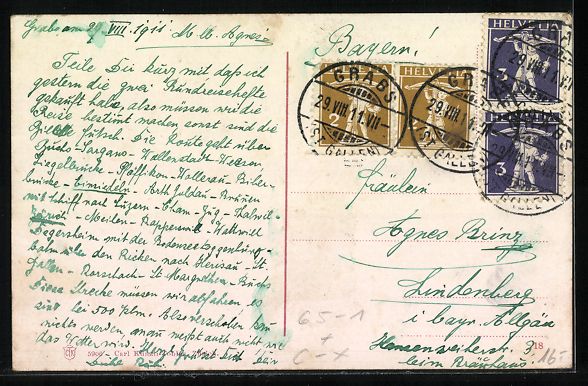 Grabs am 29. VIII. 1911 M. lb. Agnes!
Teile Dir kurz mit daß ich
gestern die zwei Rundreisehefte
gekauft habe, also müssen wir die
Reise bestimmt machen sonst sind die
Billette futsch. Die Route geht über
Buchs-Sargans-Wallenstadt-Weesen
Ziegelbrücke-Pfäffikon-Wollerau-Biber-
brücke-Einsiedeln-Arth Goldau-Brunnen
mit Schiff nach Luzern-Cham-Zug-Thalwil-
Zürich-Meilen-Rapperswil-Wattwil
Degersheim mit der Bodensee Toggenburg-
bahn über den Ricken nach Herisau-St.
Gallen-Rorschach-St Margrethen-Buchs
Diese Strecke müssen wir abfahren es
sind bei 500 Klm. Also verschoben
nichts werden
das Wetter wird.
Bayern!
HELVETIA
2
HELVETIA
2
HELVETIA
3
3
GRABS
29.VIII.11.VII
(ST. GALLEN)
GRABS
(ST. GALLEN)
Fräulein
Agnes Brinz
Lindenberg
i bayr. Allgäu
beim Bräuhaus
65-1
+
C-X
18
16.-
5906 Carl Künzli